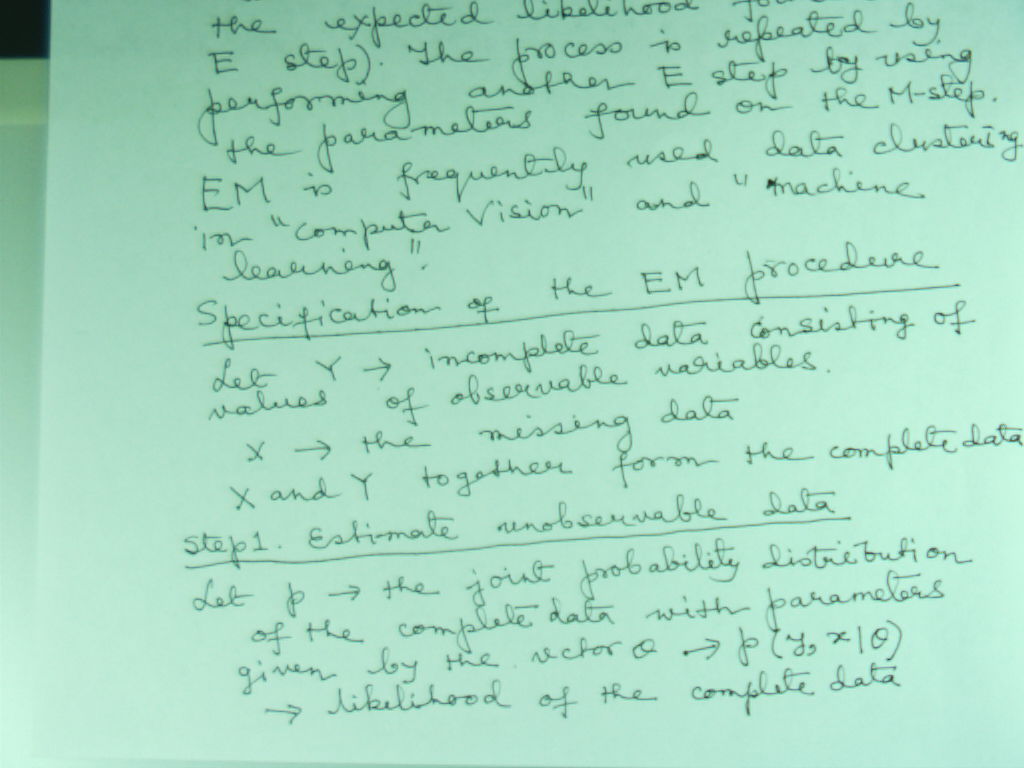 the expected likelihood
E step). The process is repeated by
performing another E step by using
the parameters found on the M-step.
EM is frequently used data clustering
in "computer Vision" and "machine
learning".
Specification of the EM procedure
Let Y → incomplete data consisting of
values of observable variables.
X → the missing data
X and Y together form the complete data
Step 1. Estimate unobservable data
Let p → the joint probability distribution
of the complete data with parameters
given by the vector θ → p(y, x|θ)
→ likelihood of the complete data